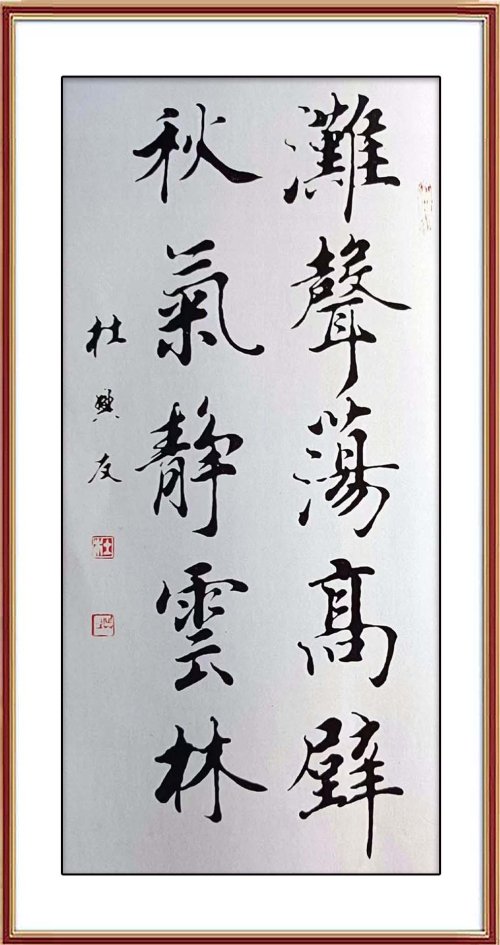 灘聲蕩高壁
秋氣靜雲林
杜興友